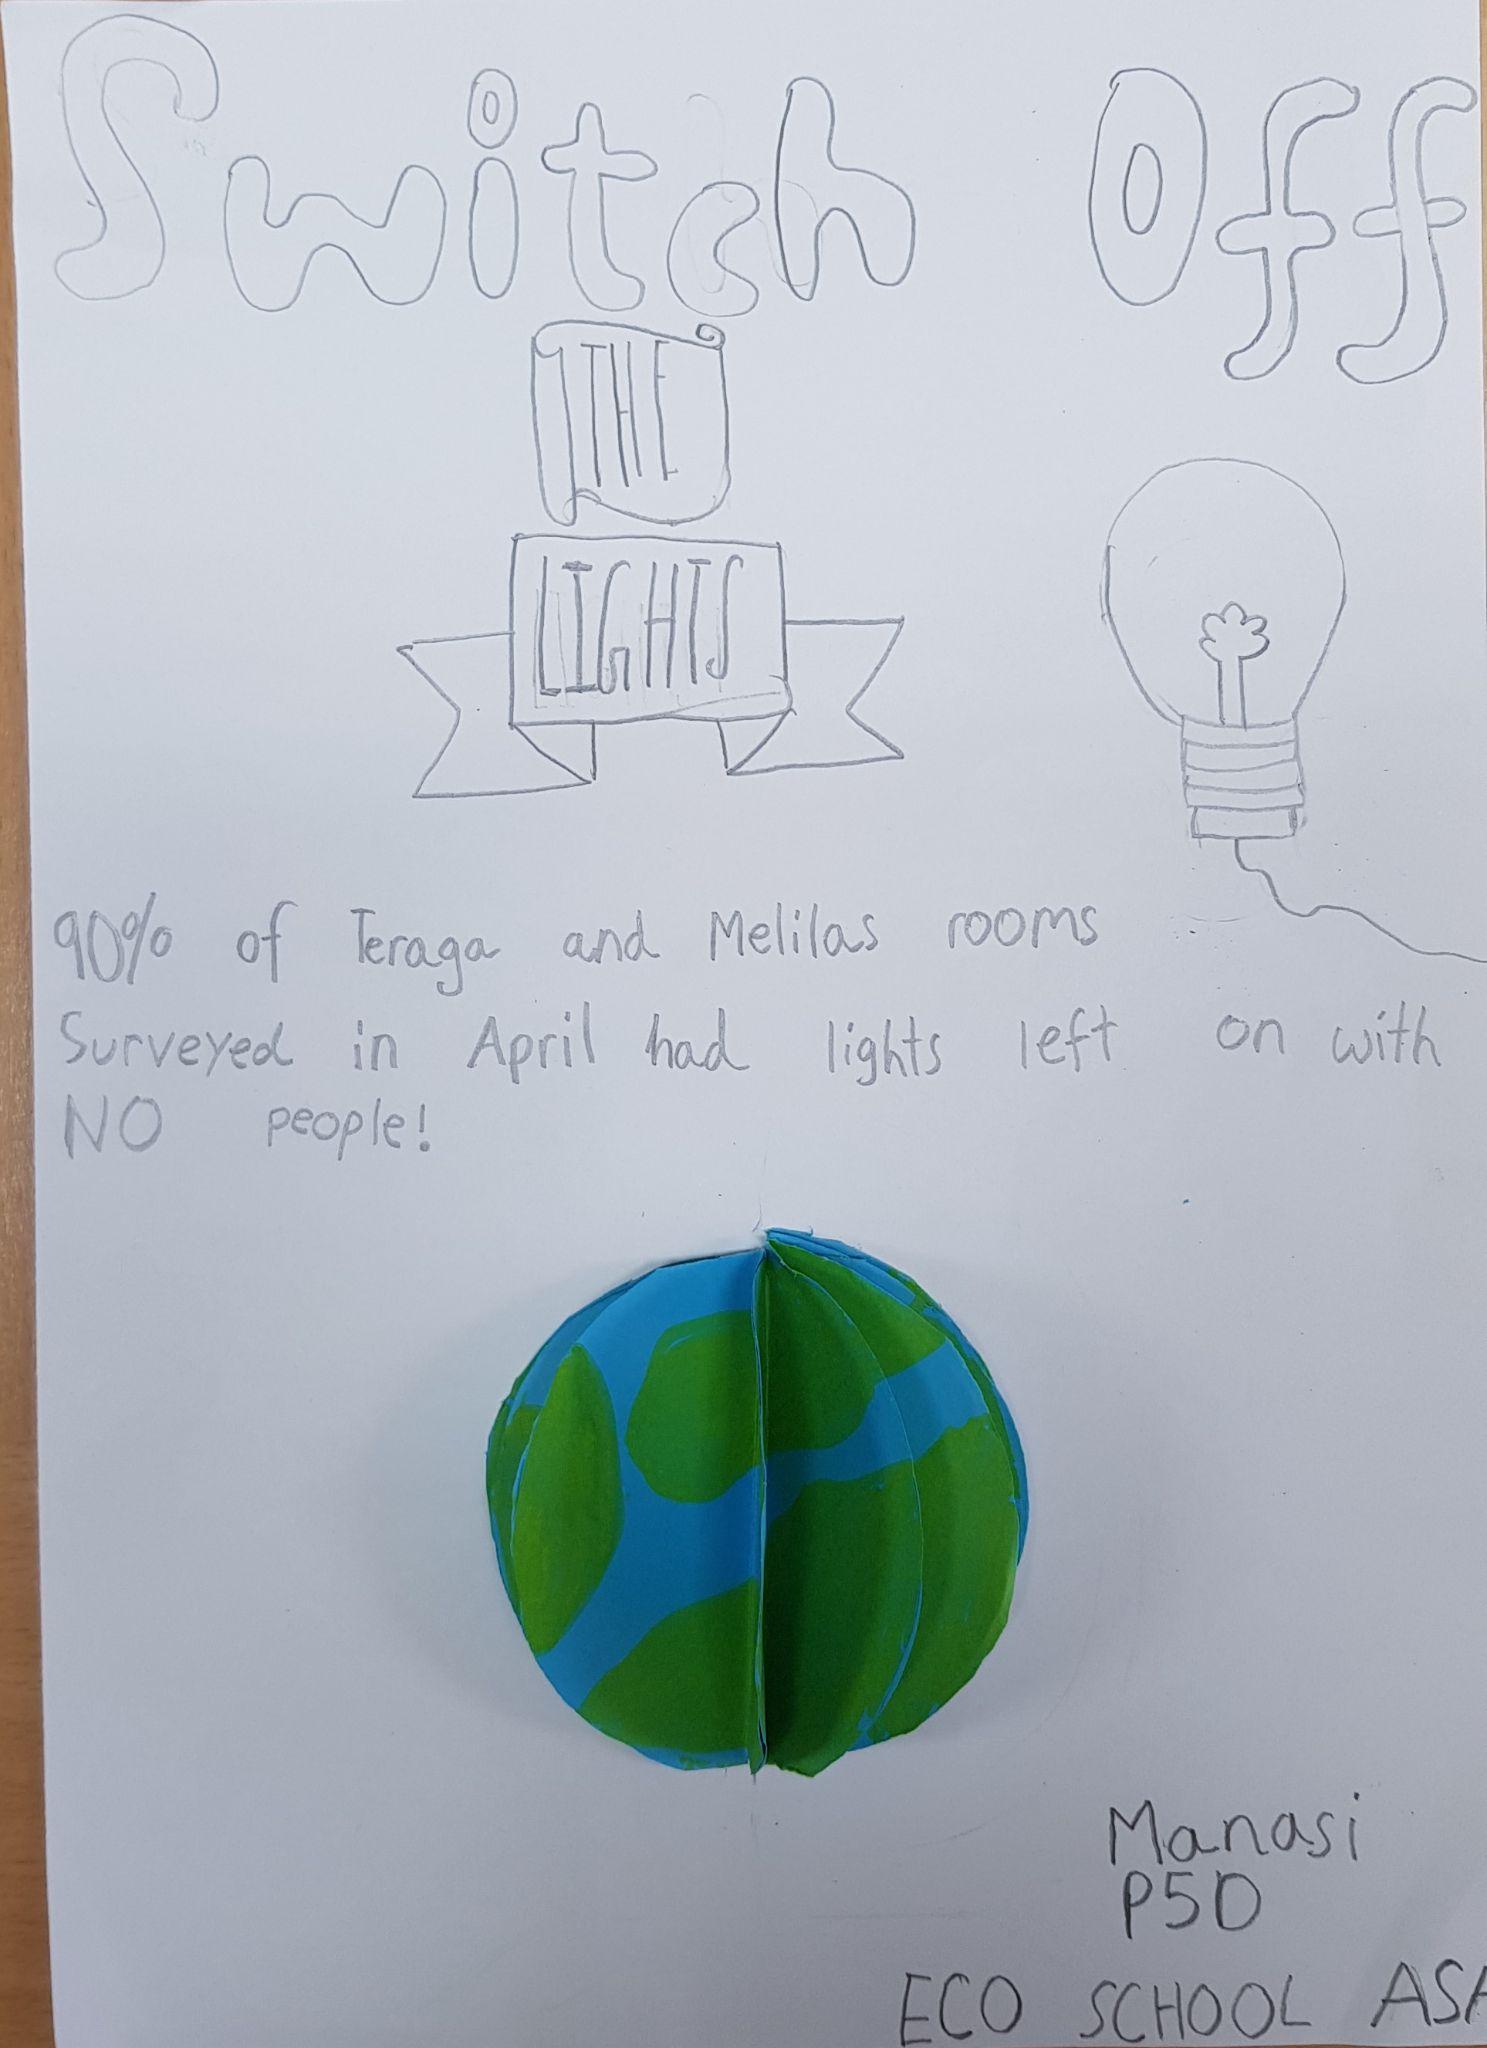 Switch Off
THE
LIGHTS
90% of Teraga and Melilas rooms
Surveyed in April had lights left on with
NO people!
Manasi
P5D
ECO SCHOOL ASA